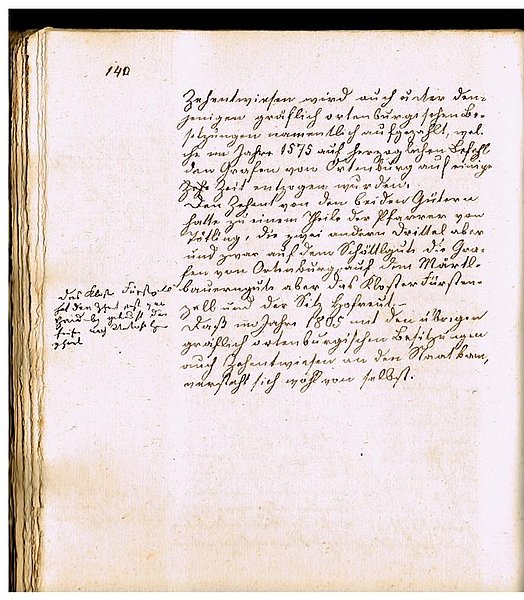 140
Zehentwiesen wird auch unter den-
jenigen gräflich ortenburgischen Be-
sitzungen namentlich aufgezählt, wel-
che im Jahre 1575 auf herzoglichen Befehl
den Grafen von Ortenburg auf einige
Zeit entzogen wurden.
Den Zehent von den beiden Gütern
hatte zu einem Theile der Pfarrer von
die zwei andern Drittel aber
und zwar auf dem Schüttlgute die Gra-
fen von Ortenburg, auf dem Märtl-
bauerngute aber das Kloster Fürsten-
zell und der Sitz Hofreut.
Daß im Jahre 1805 mit den übrigen
gräflich ortenburgischen Besitzungen
auch Zehentwiesen an den Staat kam,
versteht sich wohl von selbst.
Das Kloster Fürstenzell
hat den Zehent erst